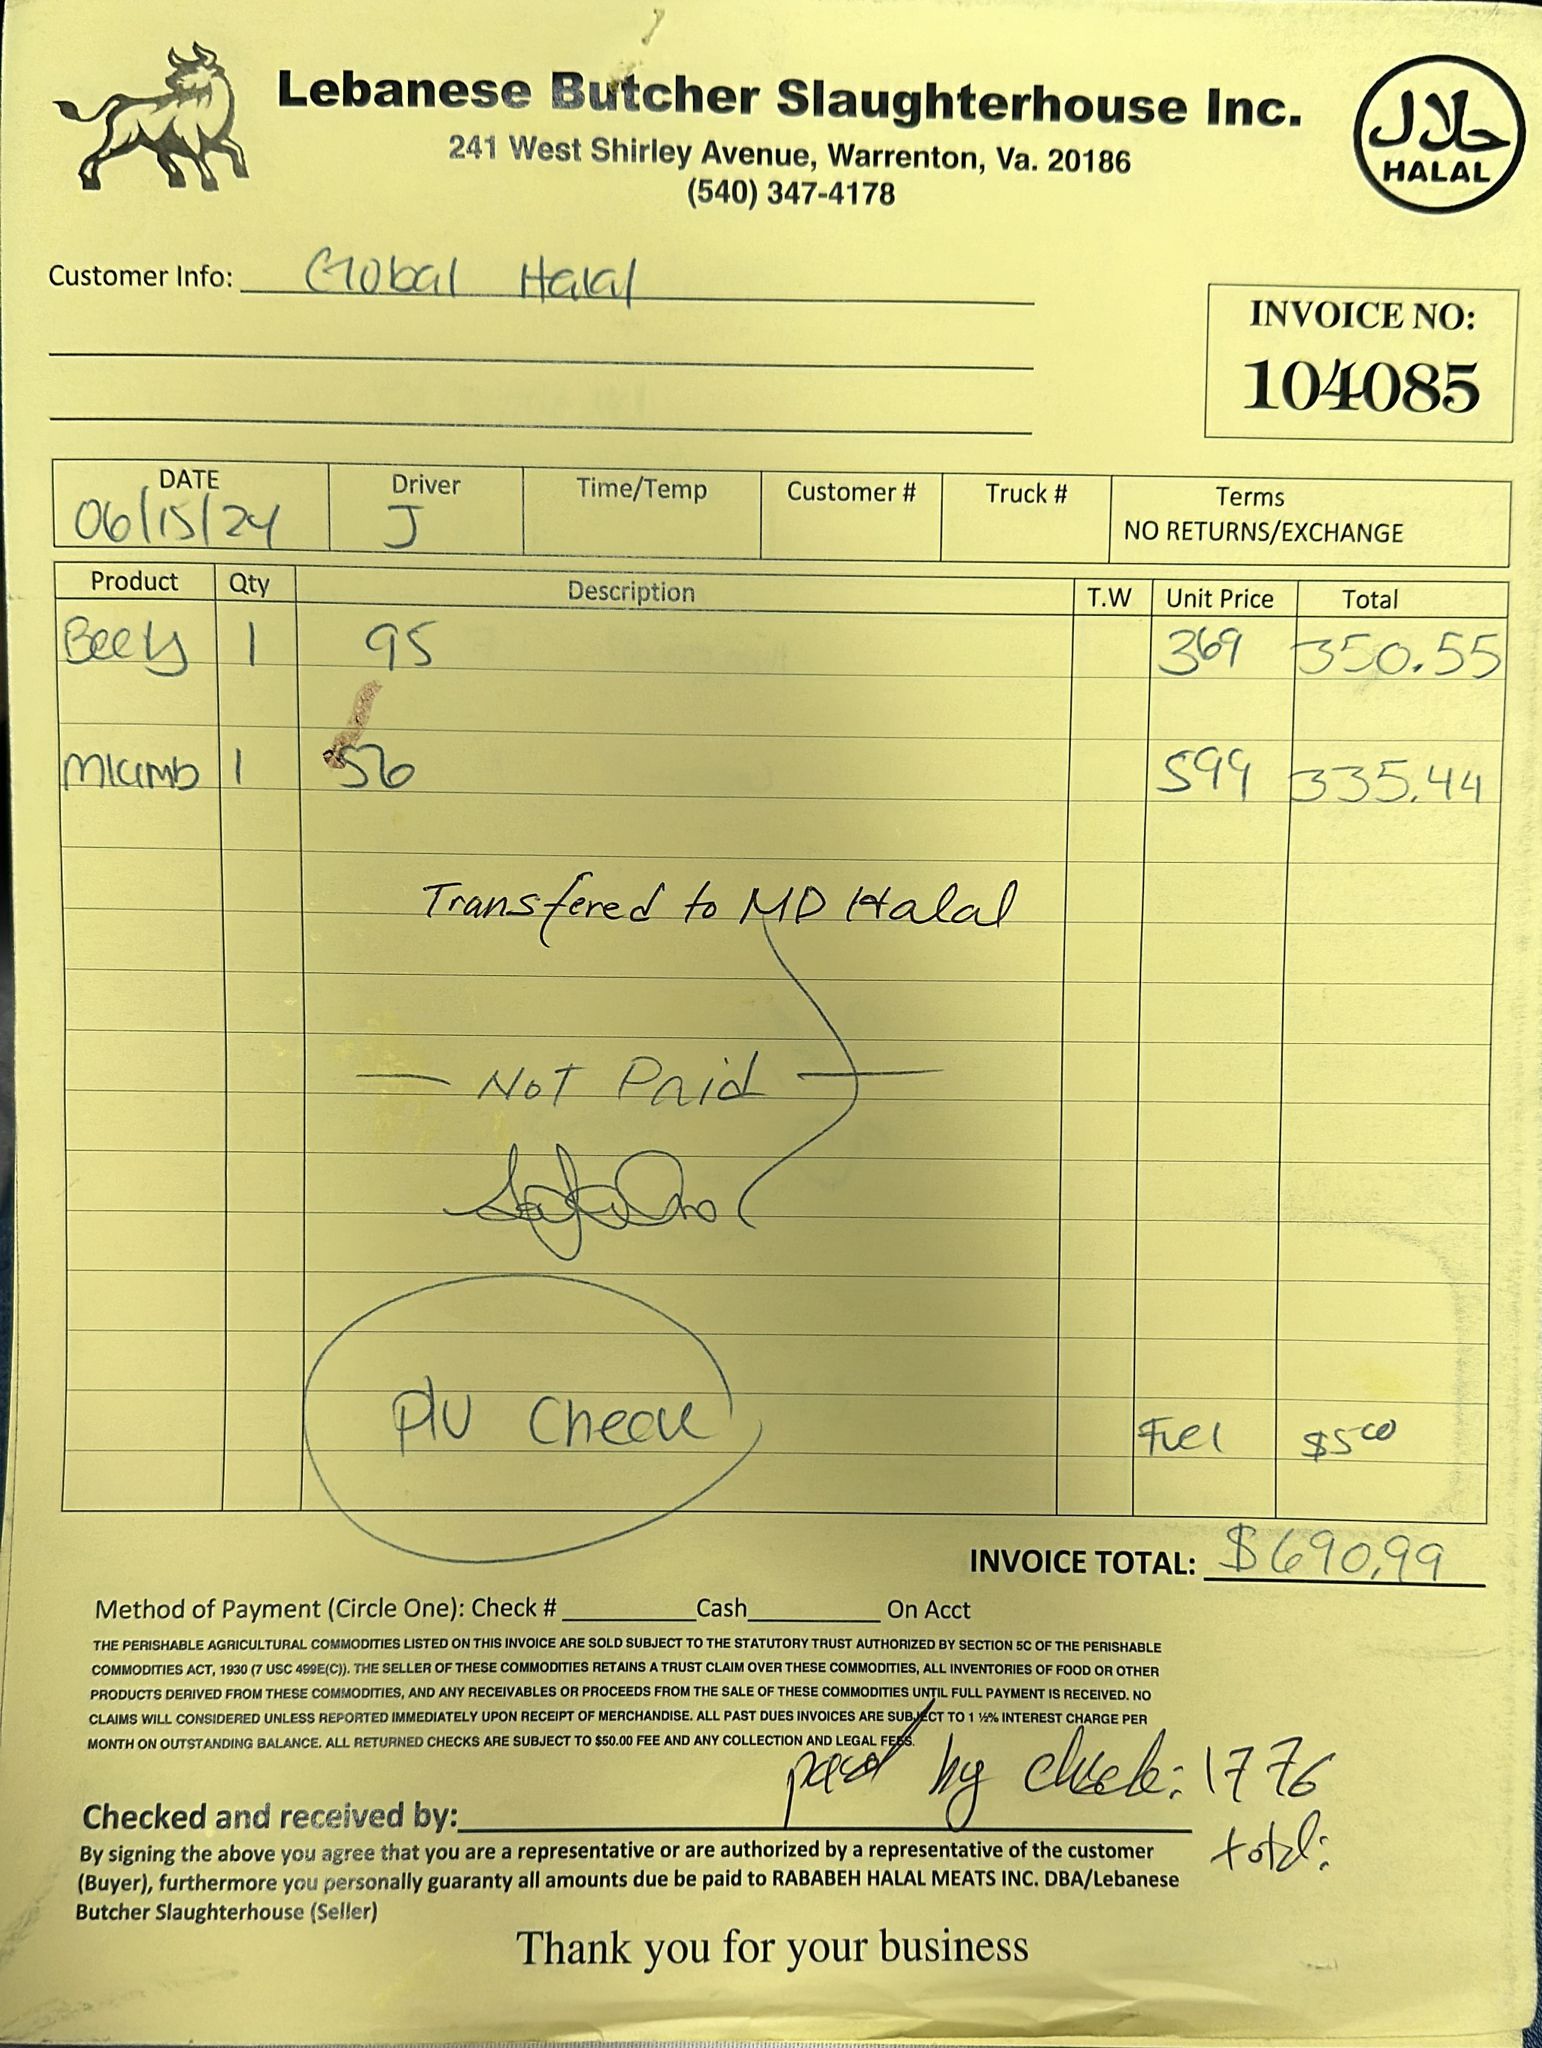 Lebanese Butcher Slaughterhouse Inc.
241 West Shirley Avenue, Warrenton, Va. 20186
(540) 347-4178
حلال
HALAL
Customer Info: Global Halal
INVOICE NO:
104085
DATE Driver Time/Temp Customer # Truck # Terms
06/15/24 J NO RETURNS/EXCHANGE
Product Qty Description T.W Unit Price Total
1 95 369 350.55
1 56 599 335.44
Transfered to MD Halal
- NOT Paid -
PlU Check
Fuel $5 00
INVOICE TOTAL: $690.99
Method of Payment (Circle One): Check # Cash On Acct
THE PERISHABLE AGRICULTURAL COMMODITIES LISTED ON THIS INVOICE ARE SOLD SUBJECT TO THE STATUTORY TRUST AUTHORIZED BY SECTION 5C OF THE PERISHABLE
COMMODITIES ACT, 1930 (7 USC 499E(C)). THE SELLER OF THESE COMMODITIES RETAINS A TRUST CLAIM OVER THESE COMMODITIES, ALL INVENTORIES OF FOOD OR OTHER
PRODUCTS DERIVED FROM THESE COMMODITIES, AND ANY RECEIVABLES OR PROCEEDS FROM THE SALE OF THESE COMMODITIES UNTIL FULL PAYMENT IS RECEIVED. NO
CLAIMS WILL CONSIDERED UNLESS REPORTED IMMEDIATELY UPON RECEIPT OF MERCHANDISE. ALL PAST DUES INVOICES ARE SUBJECT TO 1 ½% INTEREST CHARGE PER
MONTH ON OUTSTANDING BALANCE. ALL RETURNED CHECKS ARE SUBJECT TO $50.00 FEE AND ANY COLLECTION AND LEGAL FEES.
paid by check: 1776
total:
Checked and received by:
By signing the above you agree that you are a representative or are authorized by a representative of the customer
(Buyer), furthermore you personally guaranty all amounts due be paid to RABABEH HALAL MEATS INC. DBA/Lebanese
Butcher Slaughterhouse (Seller)
Thank you for your business